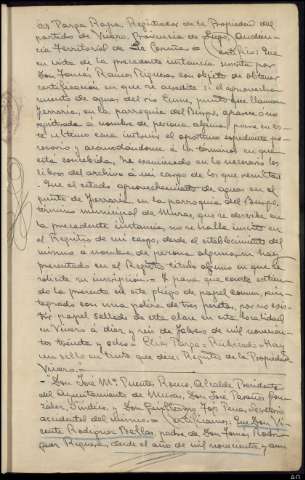 as Parga Rapa, Registrador de la Propiedad del
partido de Vivero, Provincia de Lugo, Audien-
cia Territorial de La Coruña = Certifico: Que
en vista de la precedente instancia suscrita por
Don Tomás Ramos Rigueira con objeto de obtener
certificación en que se acredite si el aprovecha-
miento de aguas del río Eume, punto que llaman
Ferraria, en la parroquia del Burgo, aparece o no
inscrito a nombre de persona alguna, para en es-
te último caso instruir el oportuno expediente po-
sesorio y acomodándome a los términos en que
esta concebida, he examinado en lo necesario los
libros del archivo a mi cargo de los que resulta:
Que el citado aprovechamiento de aguas en el
punto de Ferraria en la parroquia del Burgo,
término municipal de Muras, que se describe en
la precedente instancia, no se halla inscrito en
el Registro de mi cargo, desde el establecimiento del
mismo a nombre de persona alguna, ni hay
presentado en el Registro título alguno en que se
solicite su inscripción. Y para que conste extien-
do la presente en este pliego de papel común, rein-
tegrado con una póliza de tres pesetas, por no exis-
tir papel sellado de esta clase en esta localidad
en Vivero a diez y seis de Febrero de mil novecien-
tos treinta y ocho = Elías Parga = Rubricado = Hay
un sello en tinta que dice: Registro de la Propiedad
Vivero.
"Don José Mª Puente Romo, Alcalde Presidente
del Ayuntamiento de Muras, Don José
Síndico, y Don Guillermo
accidental del mismo = Certificamos: Que Don Vi-
cente Rodríguez Bellas, padre de Don Tomás Rodrí-
guez Rigueira, desde el año de mil novecientos y aun